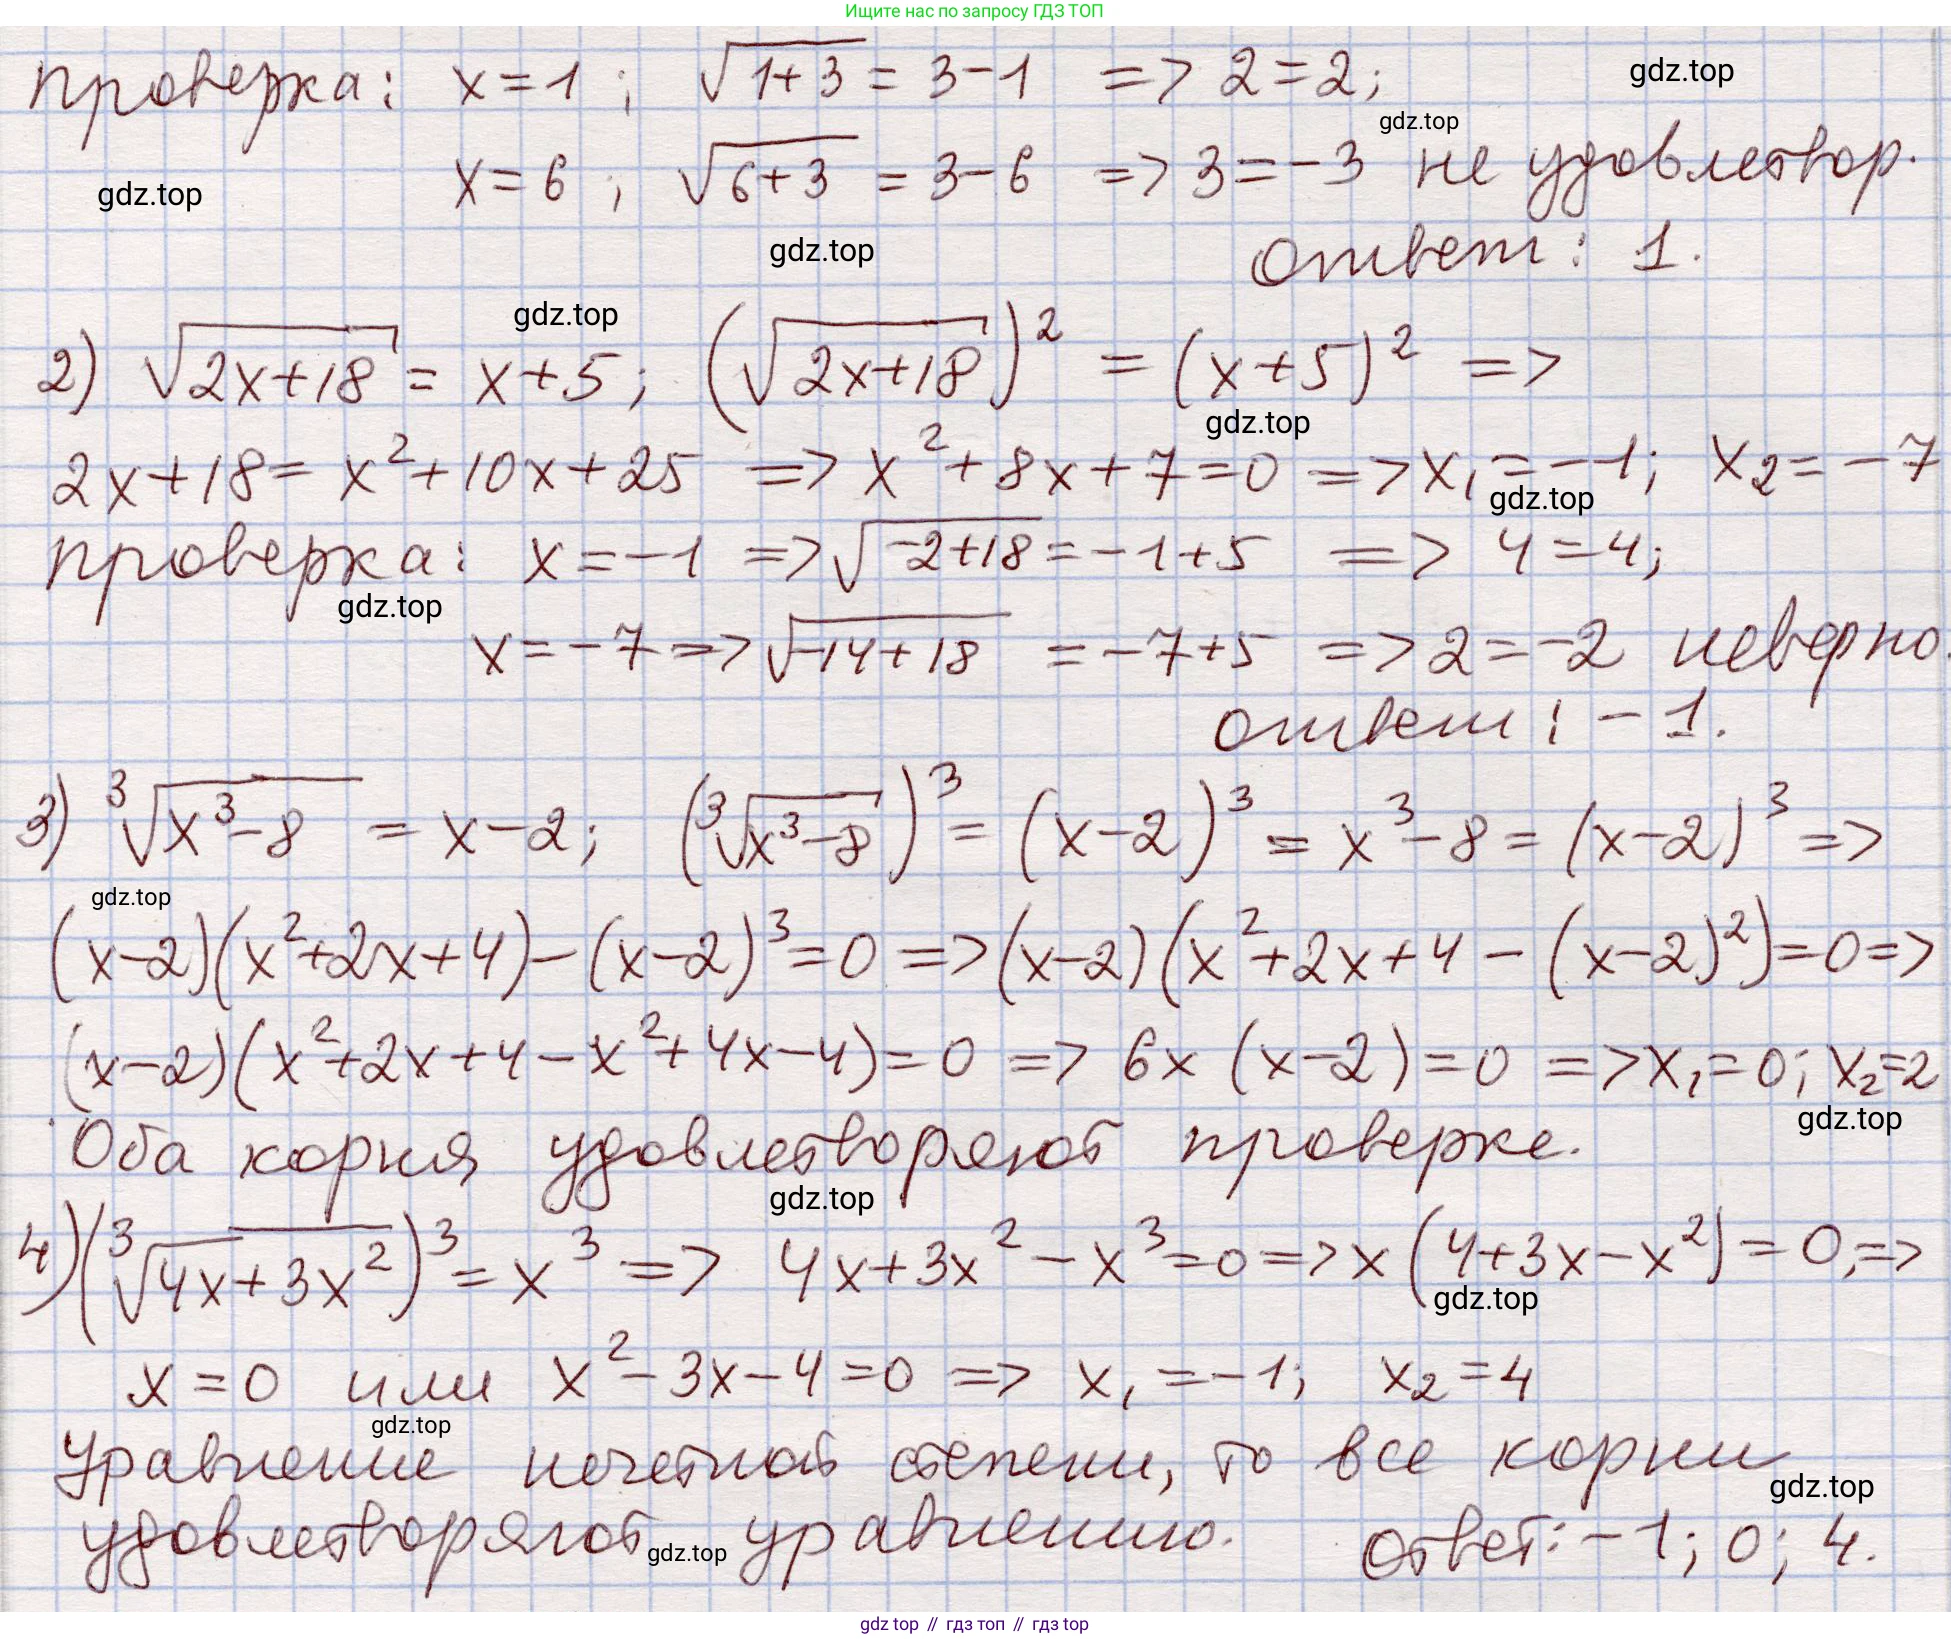 Ищите нас по запросу ГДЗ ТОП
проверка: x=1; √(1+3) = 3-1 => 2=2;
gdz.top
gdz.top
x=6; √(6+3) = 3-6 => 3=-3 не удовлетвор.
gdz.top
gdz.top
ответ: 1.
gdz.top
2) √(2x+18) = x+5; (√(2x+18))² = (x+5)² =>
gdz.top
2x+18 = x²+10x+25 => x²+8x+7=0 => x₁=-1; x₂=-7
gdz.top
проверка: x=-1 => √(-2+18) = -1+5 => 4=4;
gdz.top
x=-7 => √(-14+18) = -7+5 => 2=-2 неверно.
ответ: -1.
3) ³√(x³-8) = x-2; (³√(x³-8))³ = (x-2)³ = x³-8 = (x-2)³ =>
gdz.top
(x-2)(x²+2x+4)-(x-2)³=0 => (x-2)(x²+2x+4-(x-2)²)=0 =>
(x-2)(x²+2x+4-x²+4x-4)=0 => 6x(x-2)=0 => x₁=0; x₂=2
gdz.top
Оба корня удовлетворяют проверке.
gdz.top
4) (³√(4x+3x²))³ = x³ => 4x+3x²-x³=0 => x(4+3x-x²)=0; =>
gdz.top
x=0 или x²-3x-4=0 => x₁=-1; x₂=4
gdz.top
Уравнение нечетной степени, то все корни
gdz.top
удовлетворяют уравнению. ответ: -1; 0; 4.
gdz.top
gdz top // гдз топ // гдз top